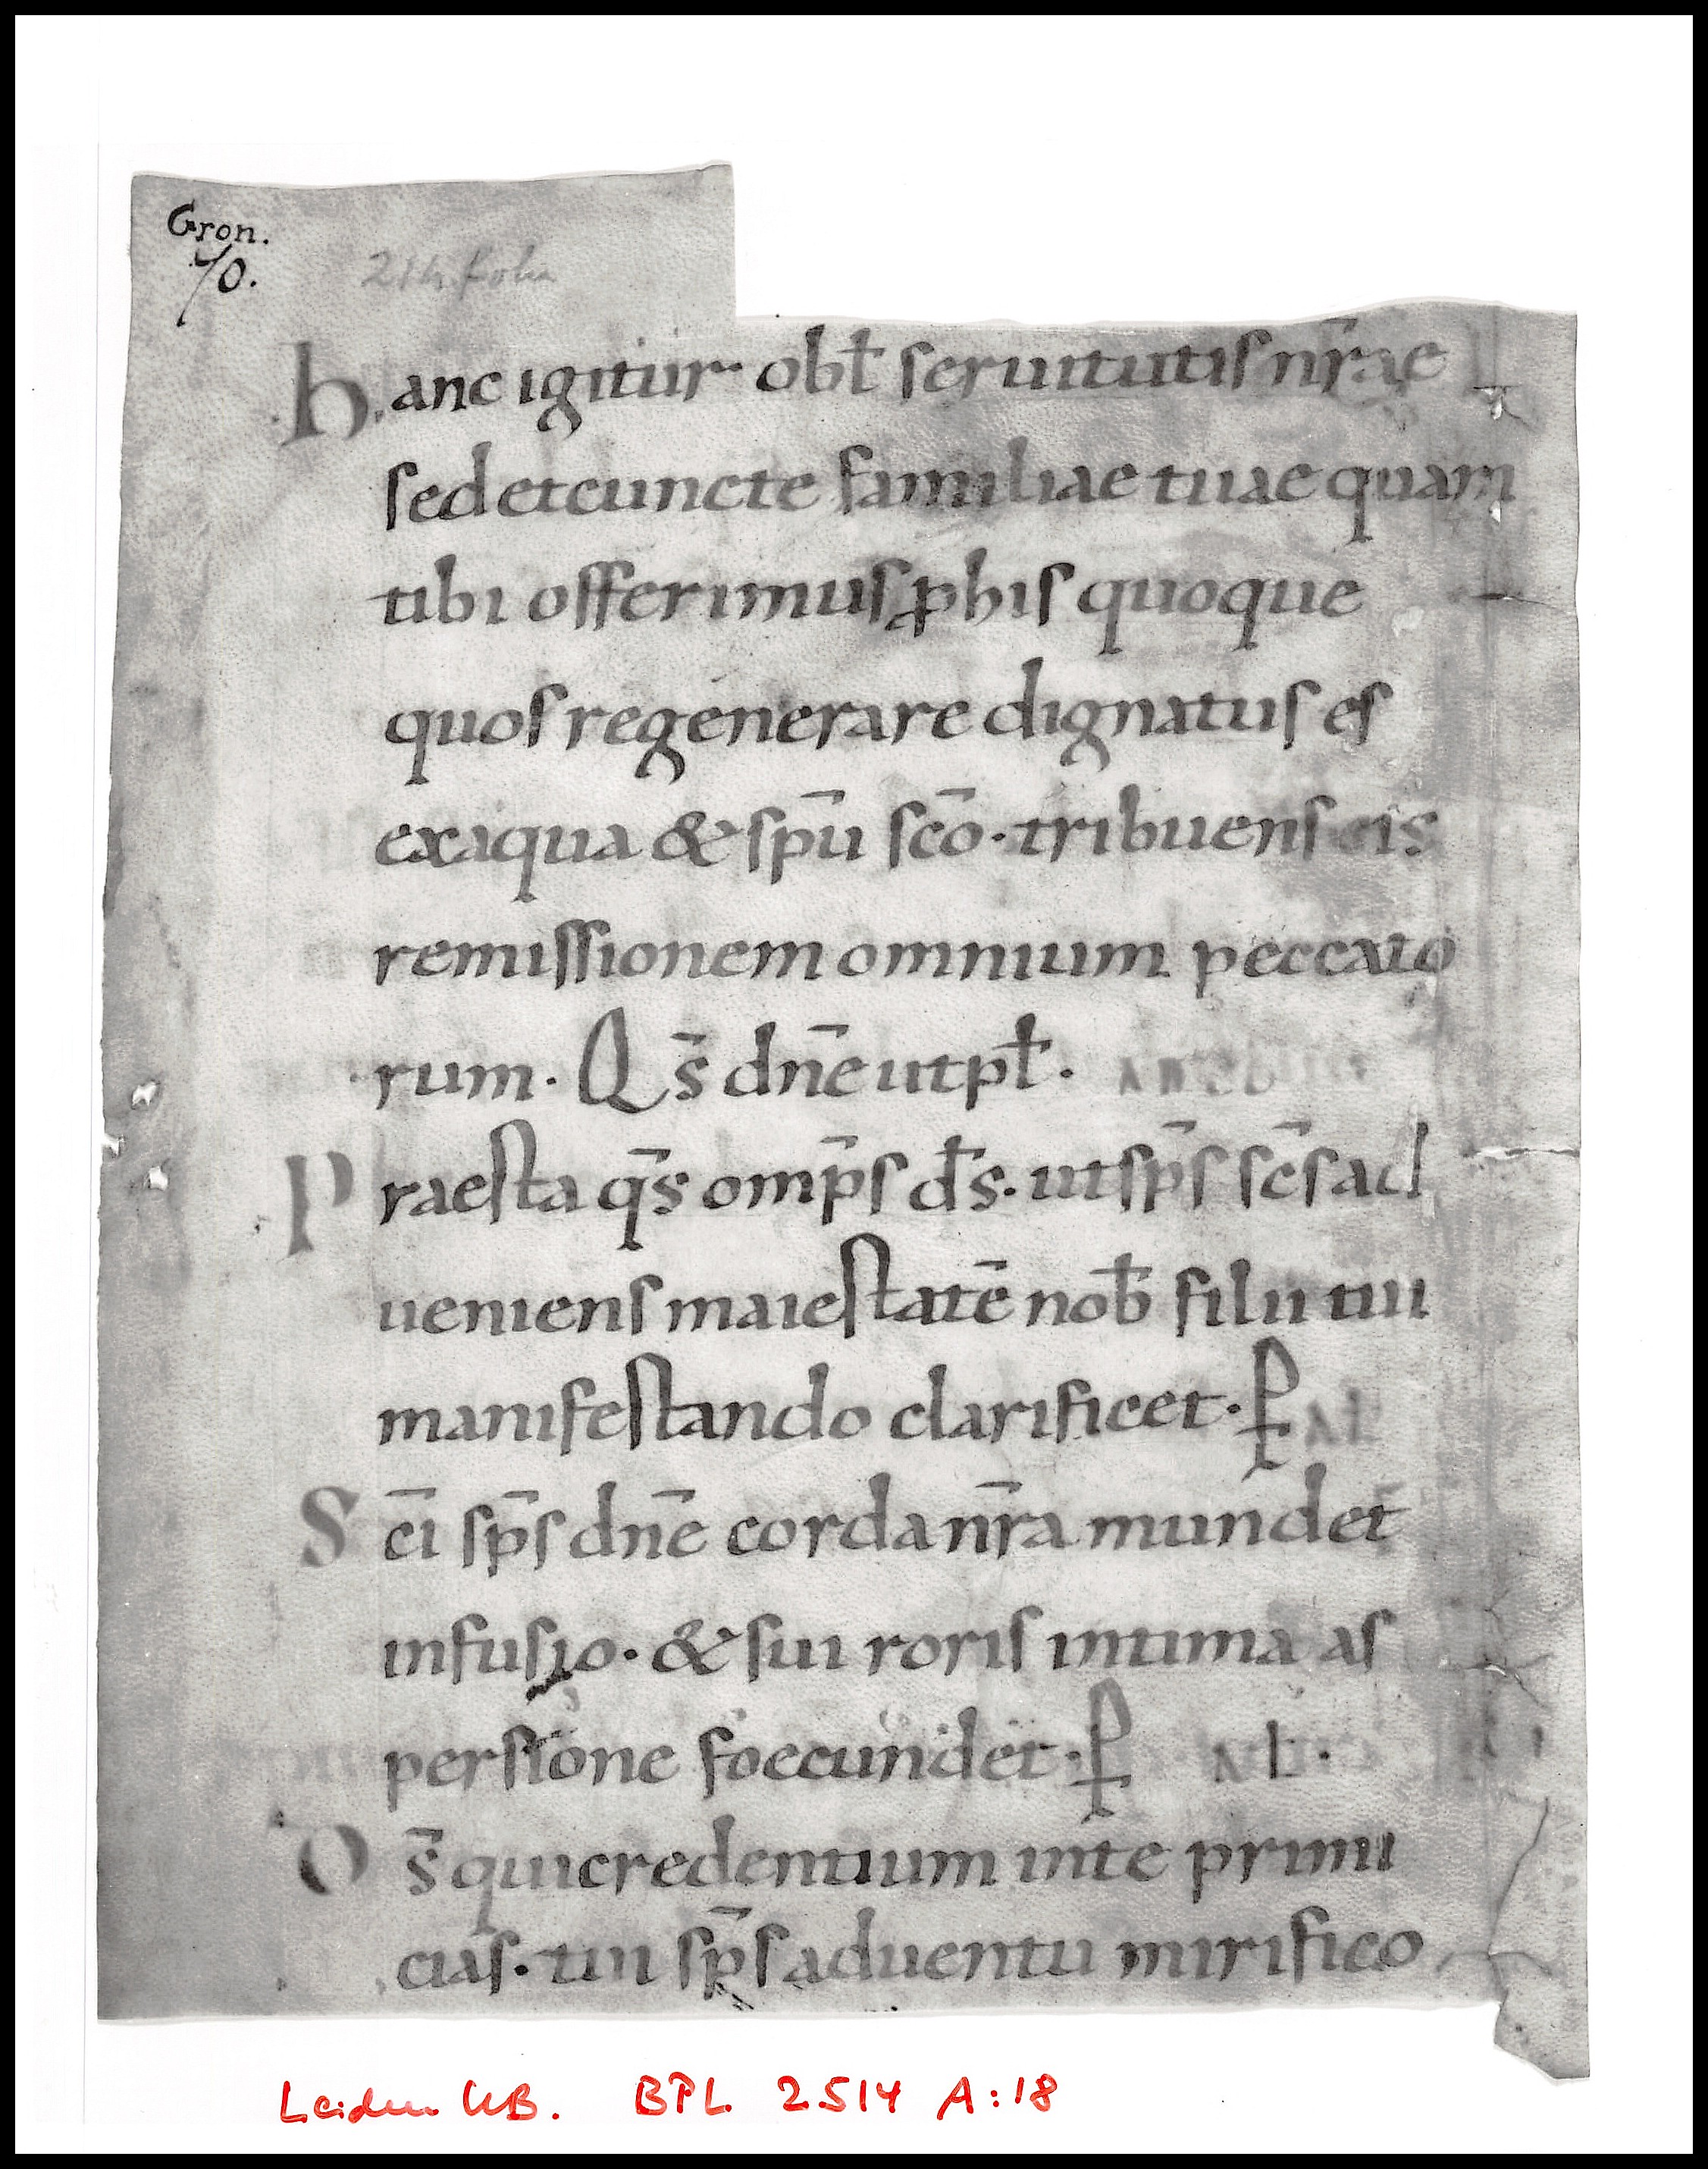 Gron.
70.
214 folia
hanc igitur obł seruitutis nr̄ae
sed et cuncte familiae tuae quam
tibi offerimus ꝓ his quoque
quos regenerare dignatus es
ex aqua & spū scō· tribuens eis
remissionem omnium peccato
rum· Qs̄ dnē ut pł·
Praesta qs̄ omps̄ ds̄· ut sps̄ scs̄ ad
ueniens maiestatē nob̄ filii tui
manifestando clarificet· P
Scī sps̄ dnē corda nr̄a mundet
infusio· & sui roris intima as
persione foecundet· P AL·
Ds̄ qui credentium in te primi
cias· tui sps̄ aduentu mirifico
Leiden UB. BPL 2514 A:18